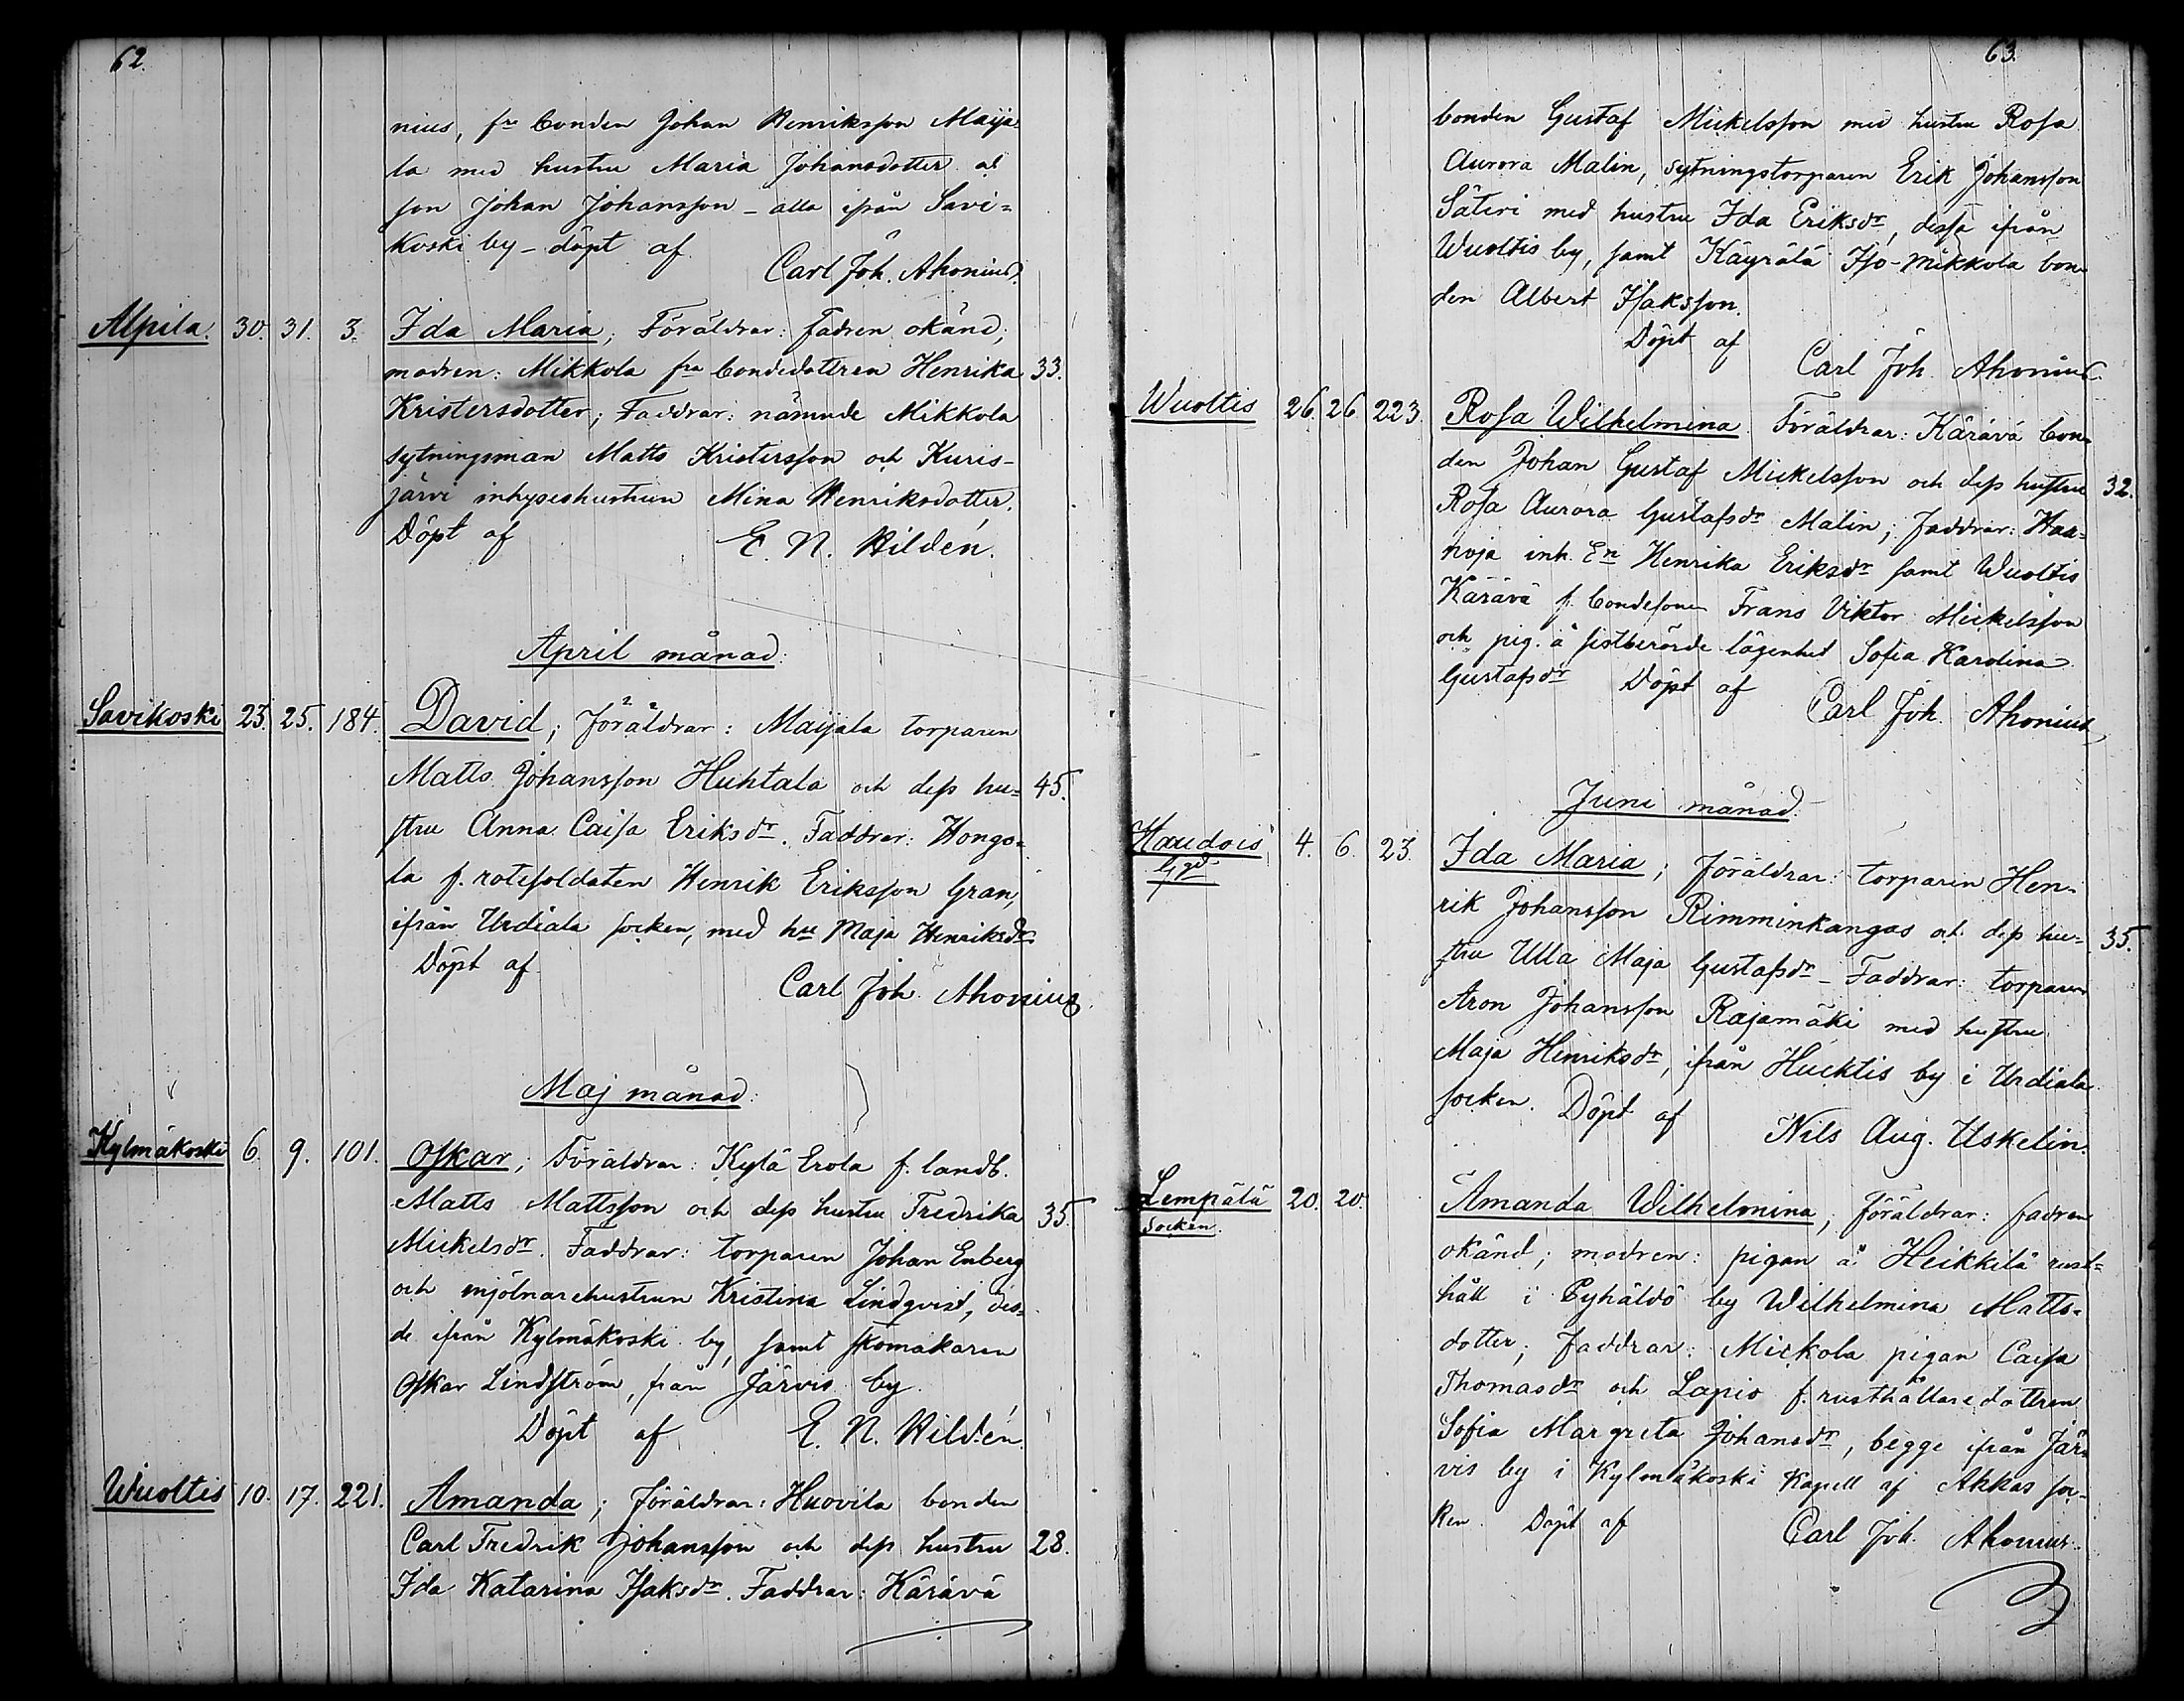 62.
nius, fre bonden Johan Henriksson Maija-
la med hustru Maria Johansdotter ot
son Johan Johansson – alla ifrån Savi=
koski by – döpt af
Carl Joh. Ahonius.
Alpila. 30. 31. 3. Ida Maria; Föräldrar: fadren okänd;
modren: Mikkola fra bondedottren Henrika 33.
Kristersdotter; Faddrar: nämnde Mikkola
sytningsman Matts Kristersson och Kuris-
järvi inhyseshustrun Mina Henriksdotter.
Döpt af E. N. Hildén.
April månad:
Savikoski 23. 25. 184. David; Föräldrar: Maijala torparen
Matts Johansson Huhtala och dess hu= 45.
stru Anna Caisa Eriksdr. Faddrar: Hongo=
la f. rotesoldaten Henrik Eriksson Gran,
ifrån Urdiala socken, med hu Maja Henriksdr
Döpt af
Carl Joh. Ahonius.
Maj månad:
Kylmäkoski 6. 9. 101. Oskar; Föräldrar: Kylä Erola f. landb.
Matts Mattsson och dess hustru Fredrika 35.
Mickelsdr. Faddrar: torparen Johan Enberg
och mjölnarehustrun Kristina Lindqvist, des-
de ifrån Kylmäkoski by, samt skomakaren
Oskar Lindström, från Järvis by.
Döpt af E. N. Hildén.
Wuoltis 10. 17. 221. Amanda; föräldrar: Huovila bonden
Carl Fredrik Johansson och dess hustru 28.
Ida Katarina Isaksdr. Faddrar: Kärävä
63.
bonden Gustaf Mickelsson med hustru Rosa
Aurora Malin, sytningstorparen Erik Johansson
Säteri med hustru Ida Eriksdr, dessa ifrån
Wuoltis by, samt Käyrälä Iso-Mikkola bon-
den Albert Isaksson.
Döpt af
Carl Joh. Ahonius.
Wuoltis 26. 26. 223. Rosa Wilhelmina. Föräldrar: Kärävä bon-
den Johan Gustaf Mickelsson och dess hustru 32.
Rosa Aurora Gustafsdr Malin; faddrar: Haa-
noja inh. En Henrika Eriksdr samt Wuoltis
Kärävä f. bondesonen Frans Viktor Mickelsson
och pig. å sistberörde lägenhet Sofia Karolina
Gustafsdr Döpt af Carl Joh. Ahonius
Juni månad.
Haudois 4. 6. 23. Ida Maria; föräldrar: torparen Hen-
gd
rik Johansson Rimminkangas och dess hu= 35.
stru Ulla Maja Gustafsdr – Faddrar: torparen
Aron Johansson Rajamäki med hustru
Maja Henriksdr, ifrån Hucktis by i Urdiala
socken. Döpt af
Nils Aug. Uskelin.
Lempälä 20. 20. Amanda Wilhelmina, föräldrar: fadren
Socken.
okänd; modren: pigan å Heikkilä rust=
håll i Pyhäldö by Wilhelmina Matts-
dotter; faddrar: Mickola pigan Caisa
Thomasdr och Lapio f. rusthållaredottren
Sofia Margreta Johansdr, begge ifrån Jär-
vis by i Kylmäkoski Kapell af Akkas soc-
ken. Döpt af Carl Joh. Ahonius.